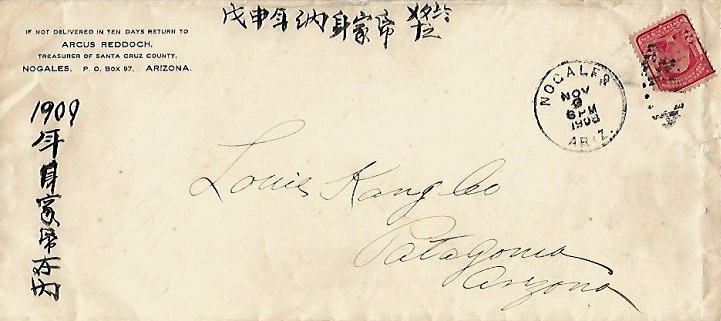 戊申年納身家帋
IF NOT DELIVERED IN TEN DAYS RETURN TO
ARCUS REDDOCH,
TREASURER OF SANTA CRUZ COUNTY,
NOGALES, P. O. BOX 97, ARIZONA.
NOGALES
NOV
6 PM
1908
ARIZ.
1909年身家帋在內
Louis Kang Co
Patagonia
Arizona